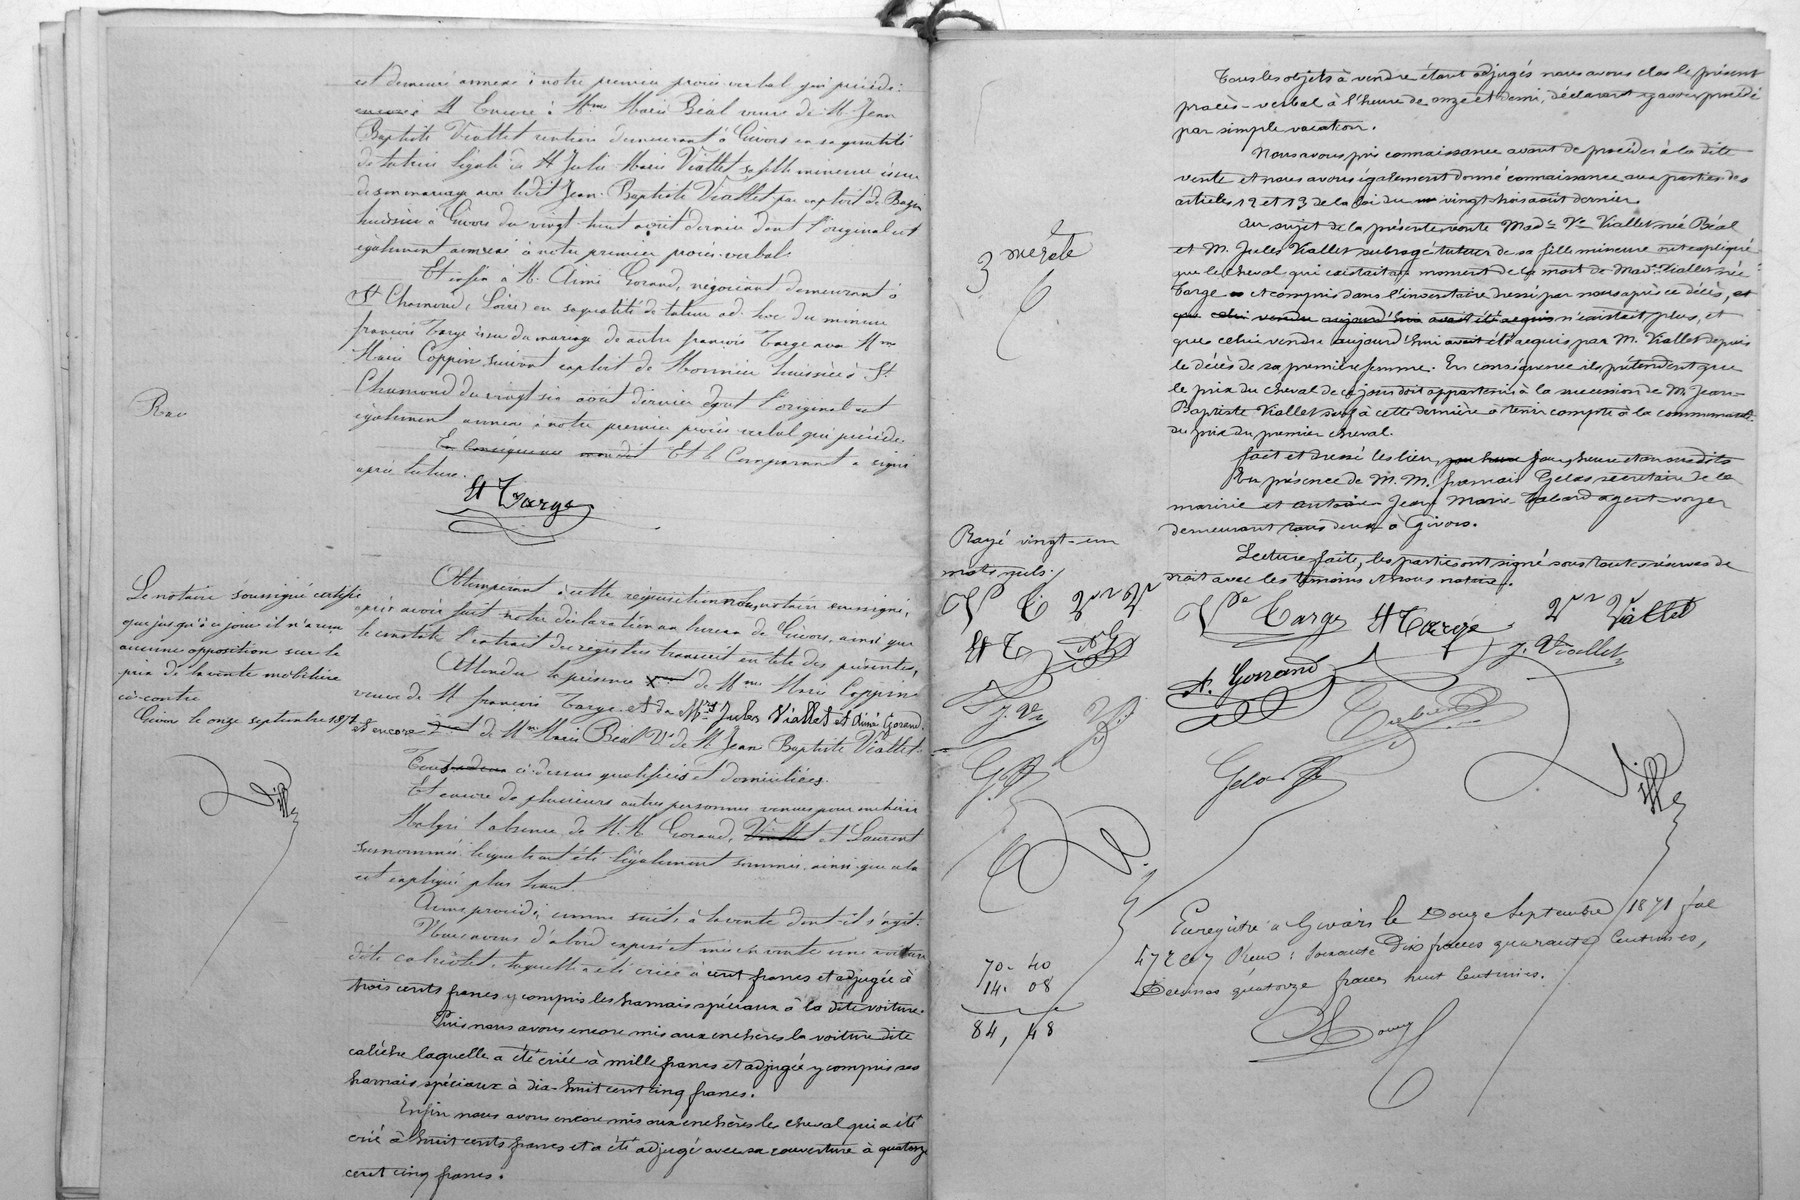 est demeuré annexé à notre premier procès-verbal qui précède.
Et Encore à Mme Marie Béal veuve de M. Jean
Baptiste Viallet rentière demeurant à Givors en sa qualité
de tutrice légale de Julie Marie Viallet sa fille mineure issue
de son mariage avec ledit Jean-Baptiste Viallet par exploit de
huissier à Givors du vingt-huit août dernier dont l'original est
également annexé à notre premier procès-verbal.
Et enfin à M. Aimé Gorand, négociant demeurant à
St Chamond (Loire) en sa qualité de tuteur ad-hoc du mineur
françois Targe issu du mariage de autre françois Targe avec Mme
Marie Coppin, suivant exploit de Monnier huissier à St
Chamond du vingt six août dernier dont l'original est
également annexé à notre premier procès-verbal qui précède.
En conséquence Et le Comparant a signé
après lecture.
Targe
Obtempérant à cette réquisition nous, notaire soussigné,
après avoir fait notre déclaration au bureau de Givors, ainsi que
le constate l'extrait du registre transcrit en tête des présentes,
Attendu la présence de Mme Marie Coppin
veuve de M françois Targe et de Mrs Jules Viallet et Aimé Gorand.
et encore de Mme Marie Béal Ve de M. Jean Baptiste Viallet.
Tous ci-dessus qualifiés et domiciliés.
Et encore de plusieurs autres personnes venues pour enchérir
Malgré l'absence de M.M. Gorand, Viallet et Laurent
susnommés lesquels ont été légalement sommés ainsi que cela
est expliqué plus haut.
Avons procédé comme suit à la vente dont il s'agit.
Nous avons d'abord exposé et mis en vente une voiture
dite cabriolet, laquelle a été criée à cent francs et adjugée à
trois cents francs y compris les harnais spéciaux à la dite voiture.
Puis nous avons encore mis aux enchères la voiture dite
calèche laquelle a été criée à mille francs et adjugée y compris ses
harnais spéciaux à dix-huit cent cinq francs.
Enfin nous avons encore mis aux enchères le cheval qui a été
crié à huit cents francs et a été adjugé avec sa couverture à quatorze
cent cinq francs.
Le notaire soussigné certifie
que jusqu'à ce jour il n'a reçu
aucune opposition sur le
prix de la vente mobilière
ci-contre
Givors le onze septembre 1871
Tous les objets à vendre étant adjugés nous avons clos le présent
procès-verbal à l'heure de onze et demi, déclarant y avoir procédé
par simple vacation.
Nous avons pris connaissance avant de procéder à la dite
vente et nous avons également donné connaissance aux parties des
articles 12 et 13 de la loi du vingt trois août dernier.
Au sujet de la présente vente Made Ve Viallet née Béal
et M. Jules Viallet subrogé tuteur de sa fille mineure ont expliqué
que le cheval qui existait au moment de la mort de Made Viallet née
Targe et compris dans l'inventaire dressé par nous après ce décès, et
que celui vendu aujourd'hui avait été acquis n'existait plus, et
que celui vendu aujourd'hui avait été acquis par M. Viallet depuis
le décès de sa première femme. En conséquence ils prétendent que
le prix du cheval de ce jour doit appartenir à la succession de M. Jean-
Baptiste Viallet sauf à cette dernière à tenir compte à la communauté
du prix du premier cheval.
fait et dressé les lieu, jour, heure et an susdits
En présence de M. M. françois Gelas secrétaire de la
mairie et Antoine Jean Marie agent-voyer
demeurant tous deux à Givors.
Lecture faite, les parties ont signé sous toutes réserves de
droit avec les témoins et nous notaire.
Rayé vingt-un
mots nuls.
Ve Targe Targe Viallet
J. Viallet
A. Gorrand
Gelas
Enregistré à Givors le Douze Septembre 1871 fol
47 Reçu : soixante dix francs quarante Centimes,
Décimes quatorze francs huit Centimes.
70. 40
14. 08
84, 48